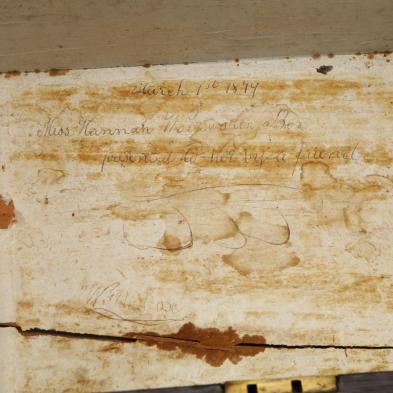 March 1st 1879
Miss Hannah Box
presented to her by a friend